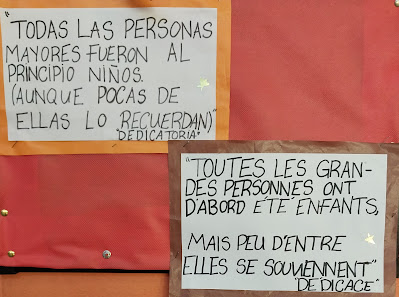 "TODAS LAS PERSONAS
MAYORES FUERON AL
PRINCIPIO NIÑOS.
(AUNQUE POCAS DE
ELLAS LO RECUERDAN)"
"DEDICATORIA"
"TOUTES LES GRAN-
DES PERSONNES ONT
D'ABORD ÉTÉ ENFANTS,
MAIS PEU D'ENTRE
ELLES SE SOUVIENNENT"
"DEDICACE"